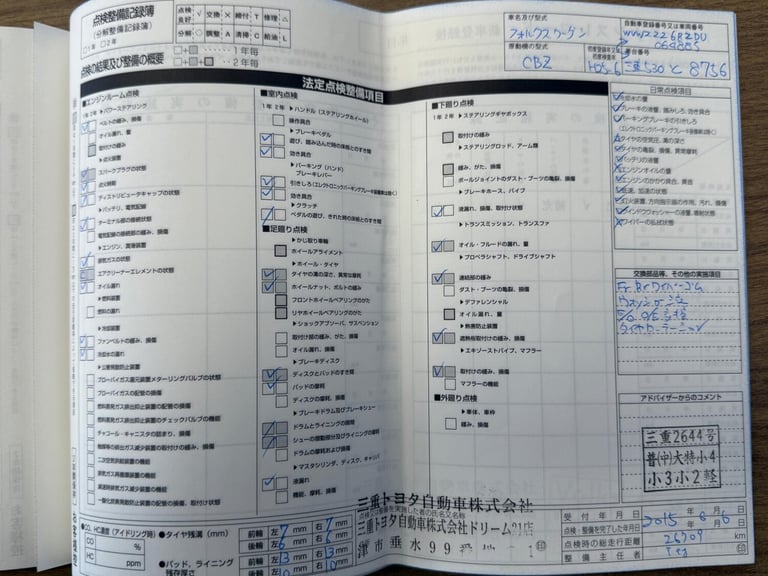 点検整備記録簿
(分解整備記録簿)
□1年 □2年
点検良好 √ 交換 × 締付 T 修理 △
分解 ○ 調整 A 清掃 C 給油 L
点検の結果及び整備の概要
・・1年毎
・・2年毎
車名及び型式
フォルクスワーゲン
原動機の型式
CBZ
自動車登録番号又は車両番号
三重530 と 8756
法定点検整備項目
■エンジンルーム点検
1年 2年 ▶パワーステアリング
ベルトの緩み、損傷
オイル漏れ、量
取付けの緩み
▶点火装置
スパークプラグの状態
点火時期
ディストリビュータキャップの状態
▶バッテリ、電気配線
ターミナル部の接続状態
電気配線の接続部の緩み、損傷
▶エンジン、潤滑装置
排気ガスの状態
エアクリーナーエレメントの状態
オイル漏れ
▶燃料装置
燃料の漏れ
▶冷却装置
ファンベルトの緩み、損傷
冷却水の漏れ
▶公害発散防止装置
ブローバイガス還元装置メターリングバルブの状態
ブローバイガスの配管の損傷
燃料蒸発ガス排出抑止装置の配管の損傷
燃料蒸発ガス排出抑止装置のチェックバルブの機能
チャコール・キャニスタの詰まり、損傷
二次空気供給装置の機能
排気ガス再循環装置の機能
減速時排気ガス減少装置の機能
一酸化炭素発散防止装置の配管の損傷、取付け状態
■室内点検
1年 2年 ▶ハンドル(ステアリングホイール)
操作具合
▶ブレーキペダル
遊び、踏み込んだ時の床板とのすき間
効き具合
▶パーキング(ハンド)
ブレーキレバー
引きしろ
効き具合
▶クラッチ
ペダルの遊び、きれた時の床板とのすき間
■足廻り点検
▶かじ取り車輪
ホイールアライメント
▶ホイール・タイヤ
タイヤの溝の深さ、異常な摩耗
ホイールナット、ボルトの緩み
フロントホイールベアリングのがた
リヤホイールベアリングのがた
▶ショックアブソーバ、サスペンション
取付け部の緩み、がた、損傷
オイル漏れ、損傷
▶ブレーキディスク
ディスクとパッドのすき間
パッドの摩耗
ディスクの摩耗、損傷
▶ブレーキドラム及びブレーキシュー
ドラムとライニングの隙間
シューの摺動部分及びライニングの摩耗
ドラムの摩耗および損傷
▶マスタシリンダ、ディスク、キャリパ
液漏れ
機能、摩耗、損傷
■下廻り点検
1年 2年 ▶ステアリングギヤボックス
取付けの緩み
▶ステアリングロッド、アーム類
緩み、がた、損傷
ボールジョイントのダスト・ブーツの亀裂、損傷
▶ブレーキホース、パイプ
液漏れ、損傷、取付け状態
▶トランスミッション、トランスファ
オイル・フルードの漏れ、量
▶プロペラシャフト、ドライブシャフト
連結部の緩み
ダスト・ブーツの亀裂、損傷
▶デファレンシャル
オイル漏れ、量
▶熱害防止装置
遮熱板取付けの緩み、損傷
▶エキゾーストパイプ、マフラー
取付けの緩み、損傷
マフラーの機能
■外廻り点検
▶車体、車枠
緩み、損傷
日常点検項目
冷却水の量
ブレーキの液量、踏みしろ、効き具合
パーキングブレーキの引きしろ
タイヤの空気圧、溝の深さ
タイヤの亀裂、損傷、異常摩耗
バッテリの液量
エンジンオイルの量
エンジンのかかり具合、異音
低速、加速の状態
灯火装置、方向指示器の作用、汚れ、損傷
ウインドウォッシャーの液量、噴射状態
ワイパーの払拭状態
交換部品等、その他の実施項目
タイヤローテーション
アドバイザーからのコメント
三重2644号
普(中)大特小4
小3小2軽
●CO、HC濃度(アイドリング時)
CO %
HC ppm
●タイヤ残溝(mm)
前輪 左 7 mm 右 7 mm
後輪 左 6 mm 右 6 mm
●パッド、ライニング残存厚さ
前輪 左 13 mm 右 13 mm
後輪 左 10 mm 右 10 mm
三重トヨタ自動車株式会社
三重トヨタ自動車株式会社ドリーム21店
津市垂水99番地
受付年月日 年 月 日
点検・整備を完了した年月日 2015年 8月 6日
点検時の総走行距離 26709 km
整備主任者